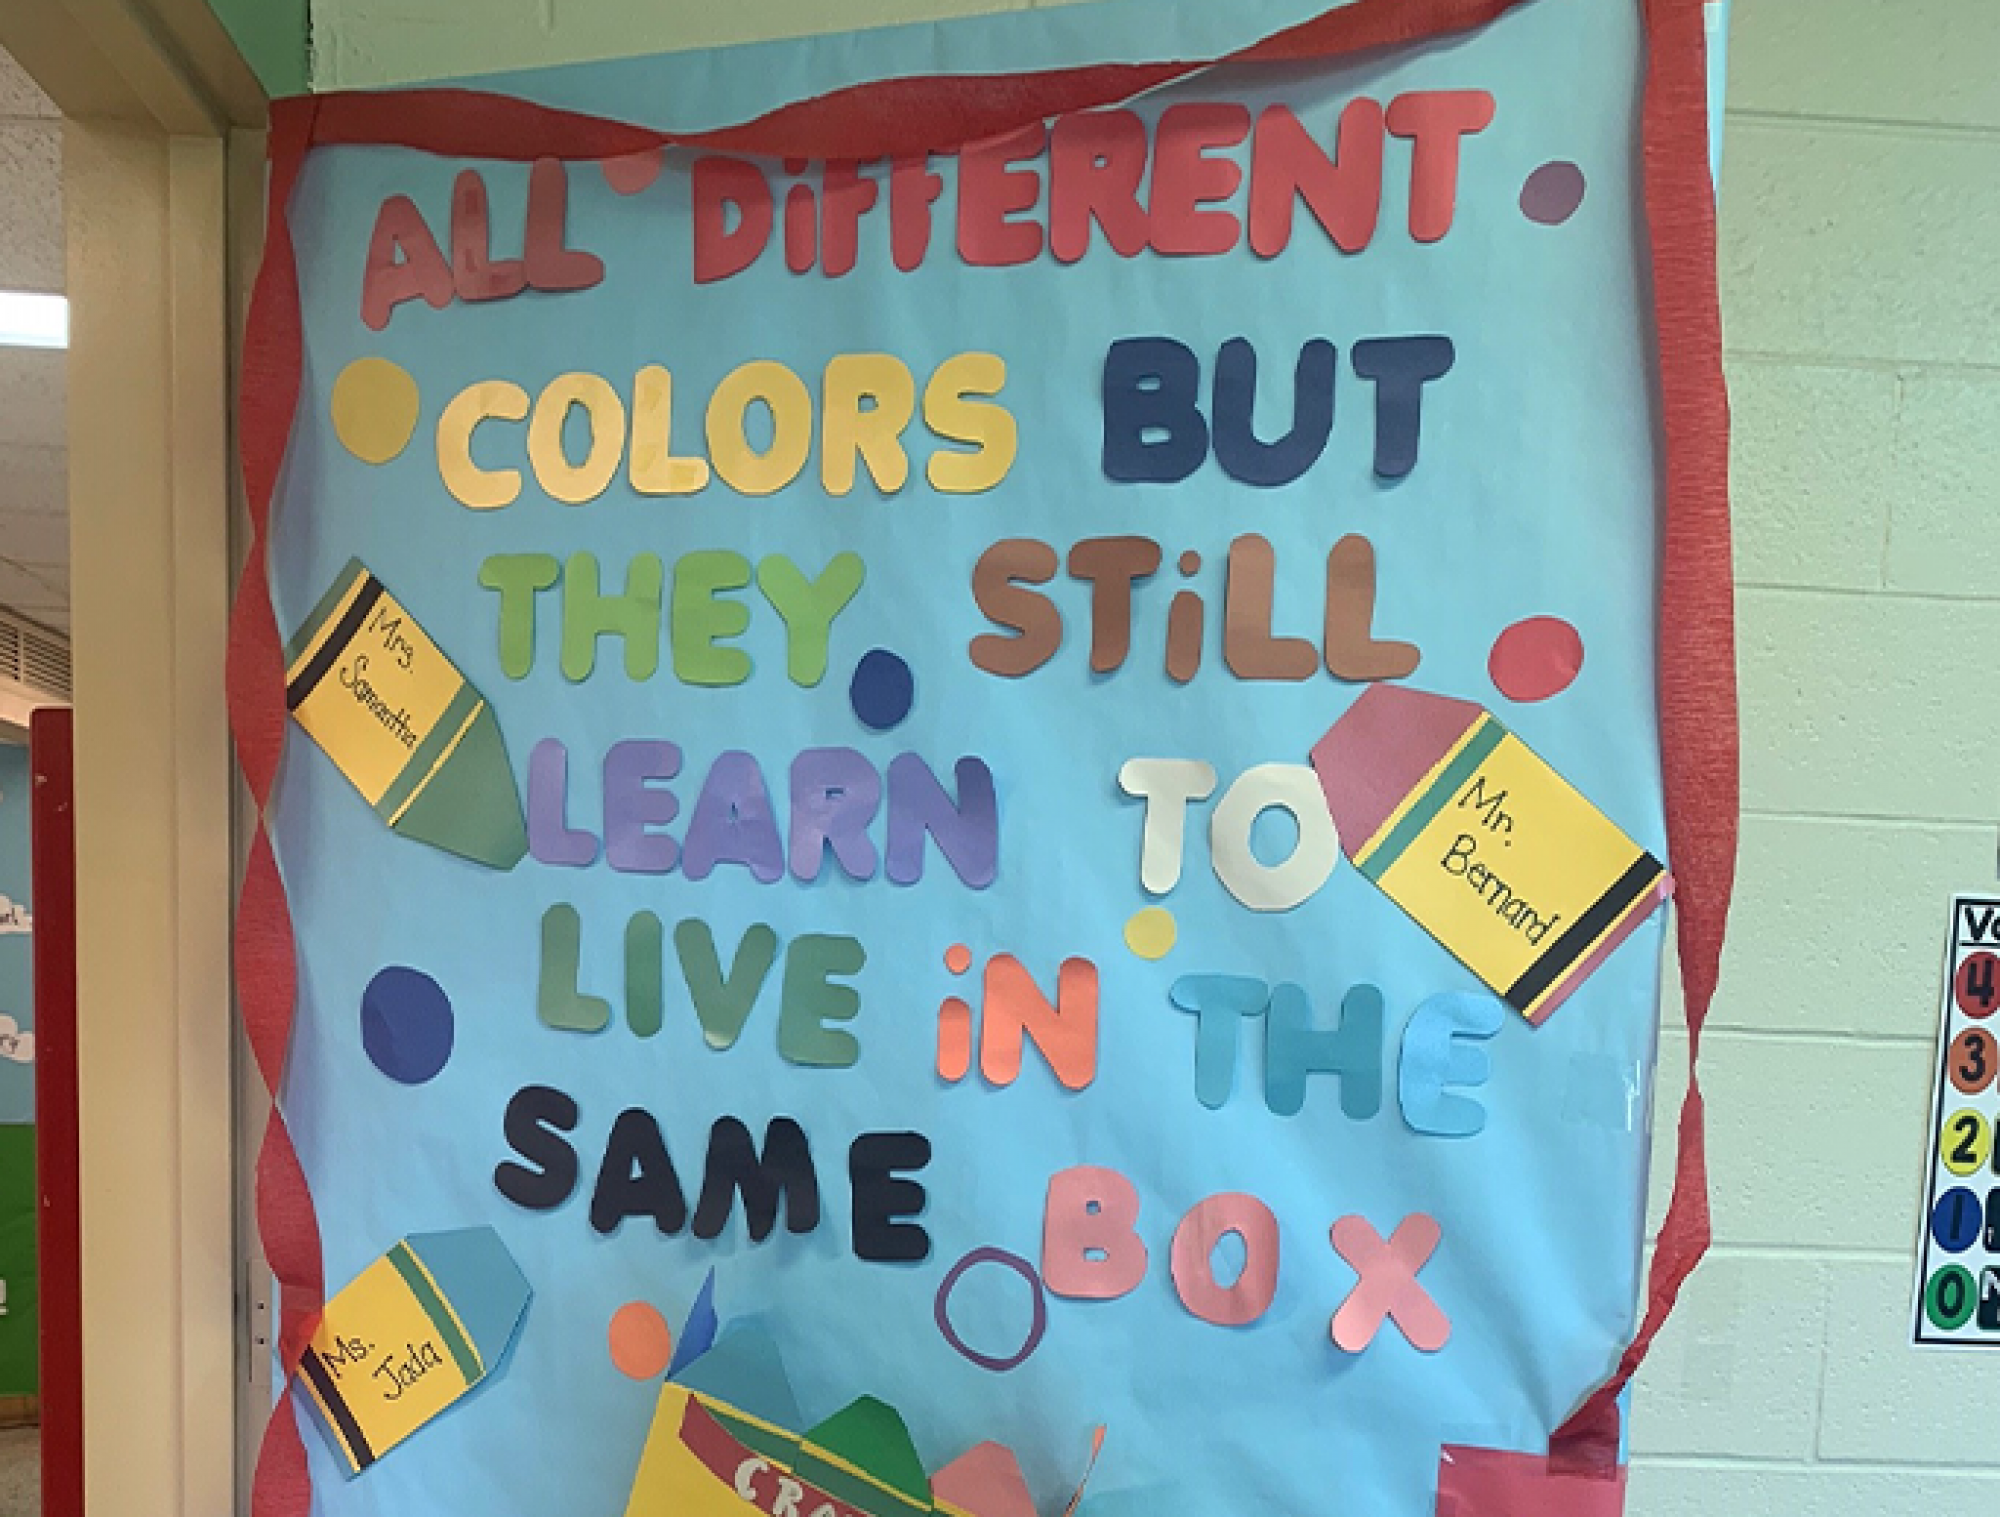 ALL DiFFERENT
COLORS BUT
THEY STiLL
LEARN TO
LIVE iN THE
SAME BOX
Mrs.
Samantha
Mr.
Bernard
Ms.
Jada
4
3
2
1
0